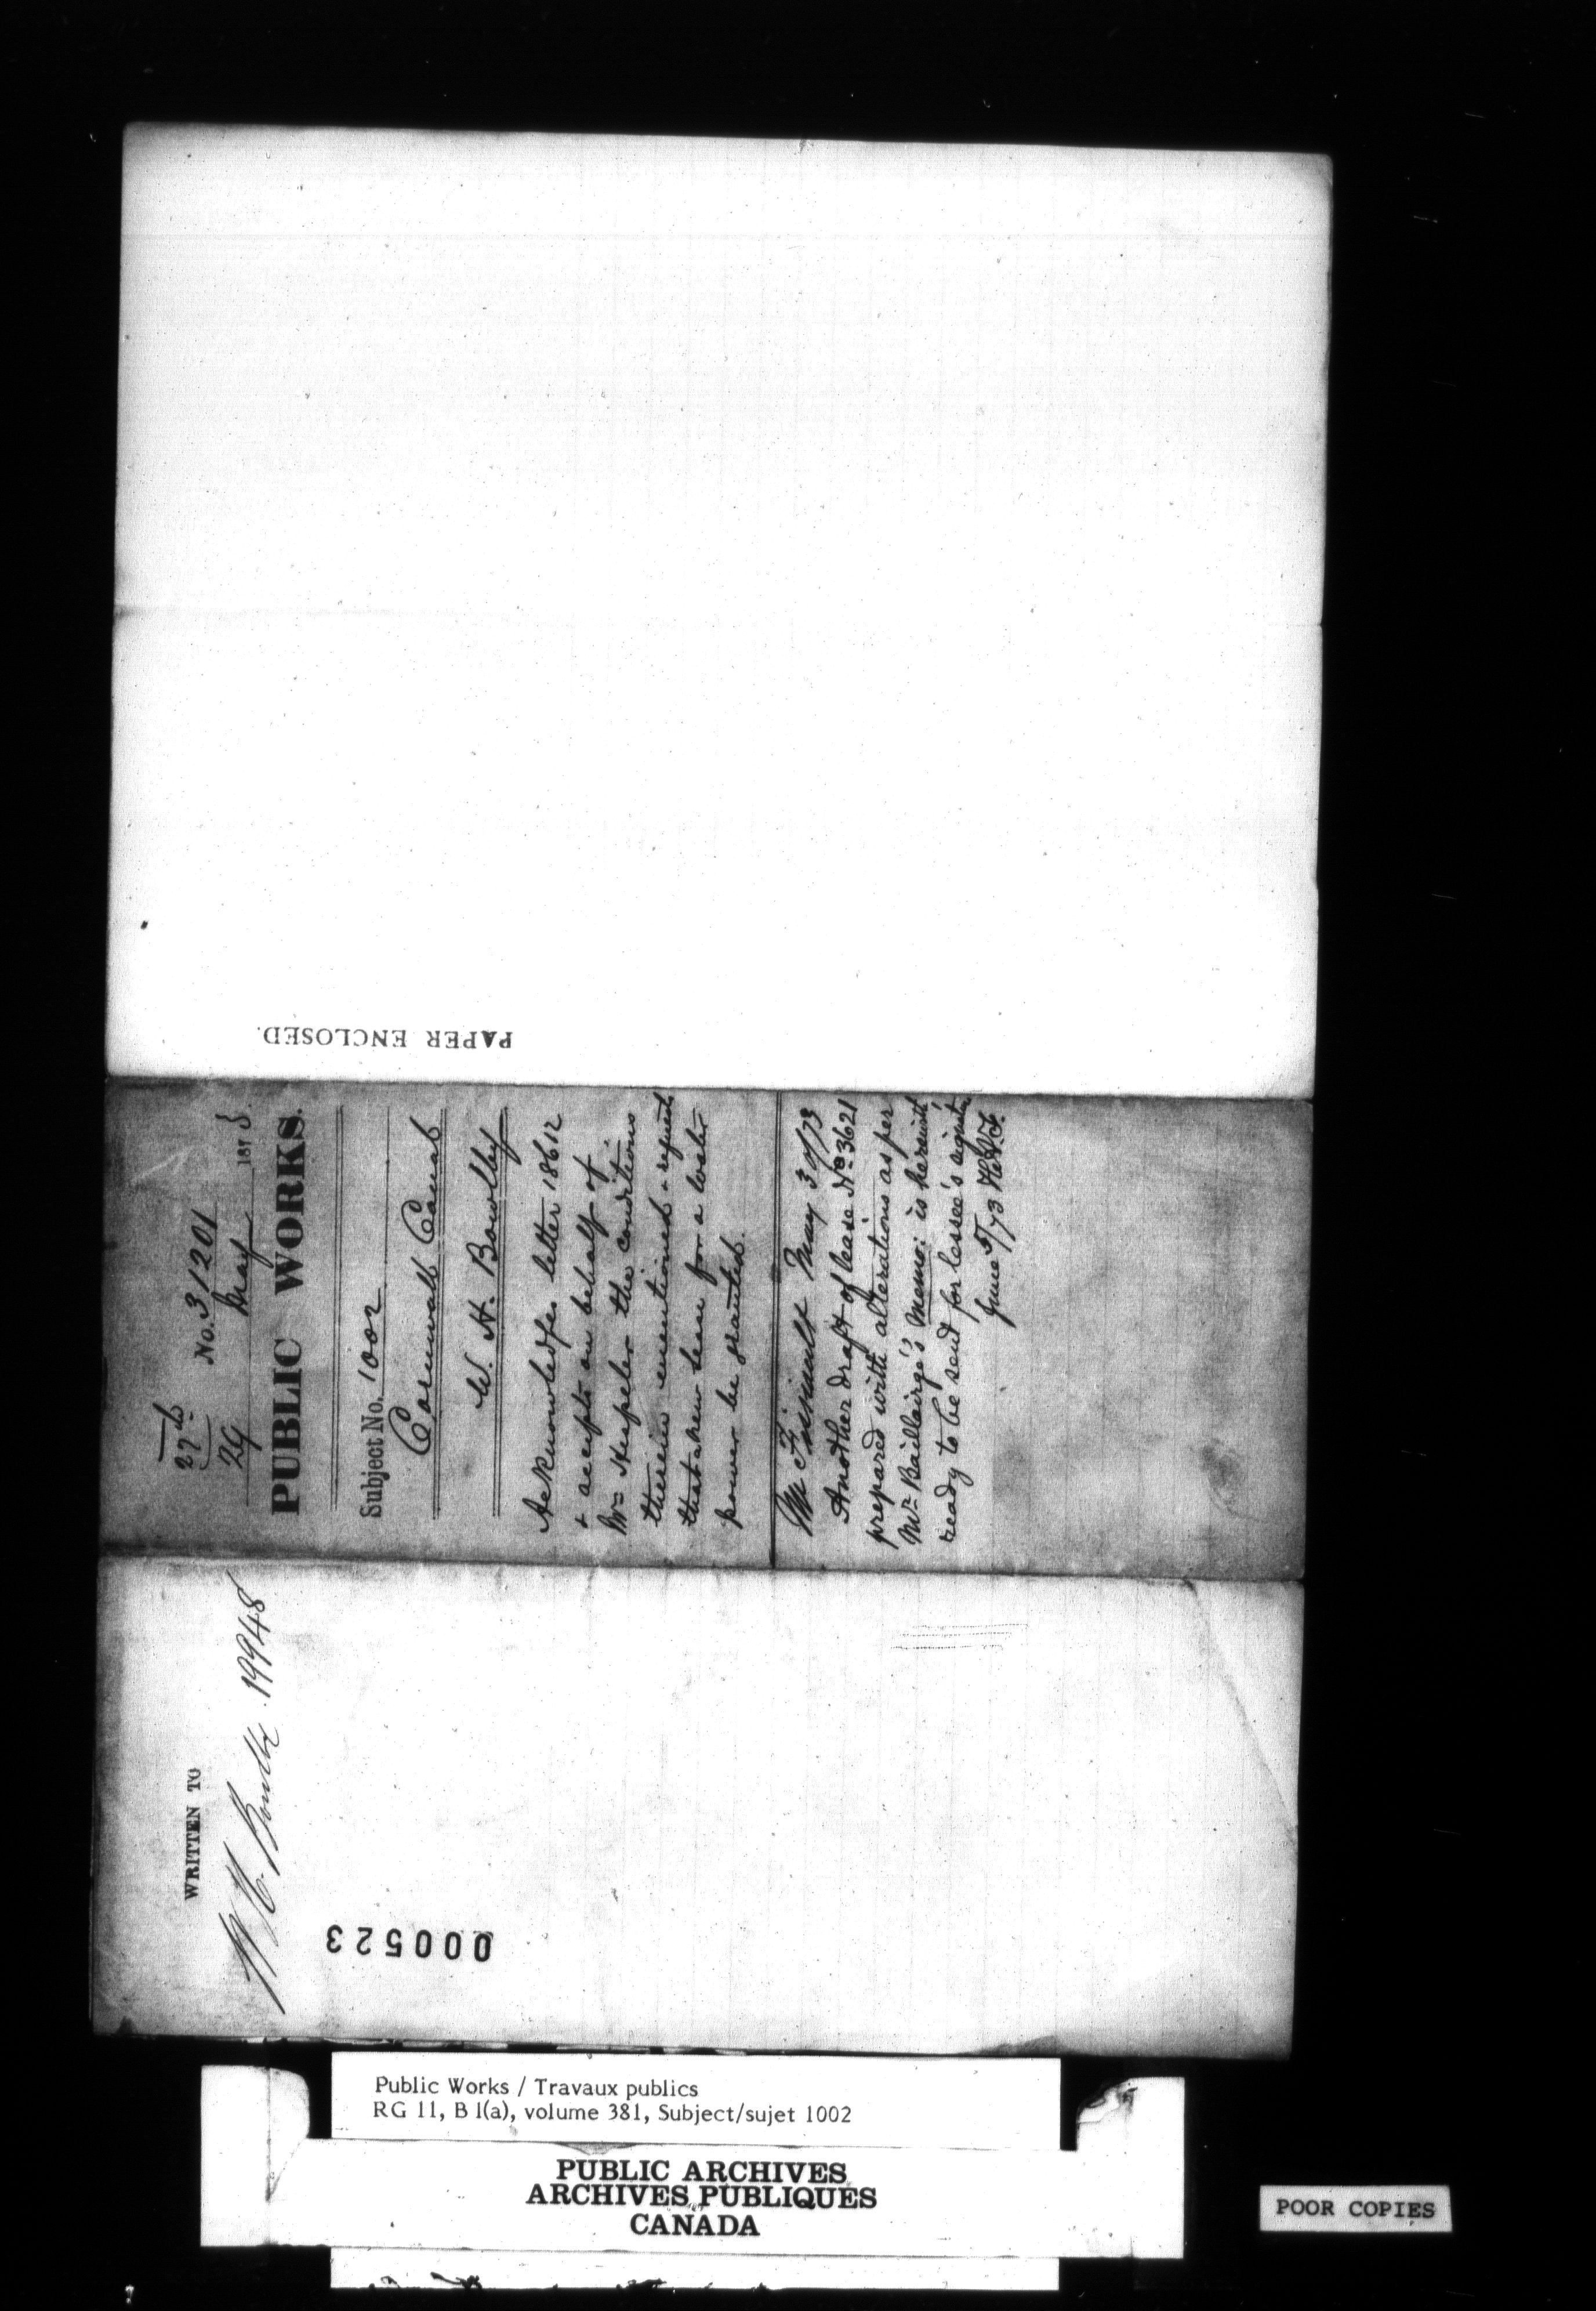 PAPER ENCLOSED.
22nd
29
No. 31201
May 1873.
PUBLIC WORKS.
Subject No. 1002
Cornwall Canal
W. H. Bowlby
Acknowledges letter 18612
& accepts on behalf of
Mr Hespeler the conditions
therein mentioned & requests
that a new lease for a water
power be granted.
May 30/73
Another draft of lease No 3621
prepared with alterations as per
Mr Baillairgé's Memo: is herewith
ready to be sent for lessee's signature
June 5/73
WRITTEN TO
W H Bowlby 19948
000523
Public Works / Travaux publics
RG 11, B 1(a), volume 381, Subject/sujet 1002
PUBLIC ARCHIVES
ARCHIVES PUBLIQUES
CANADA
POOR COPIES